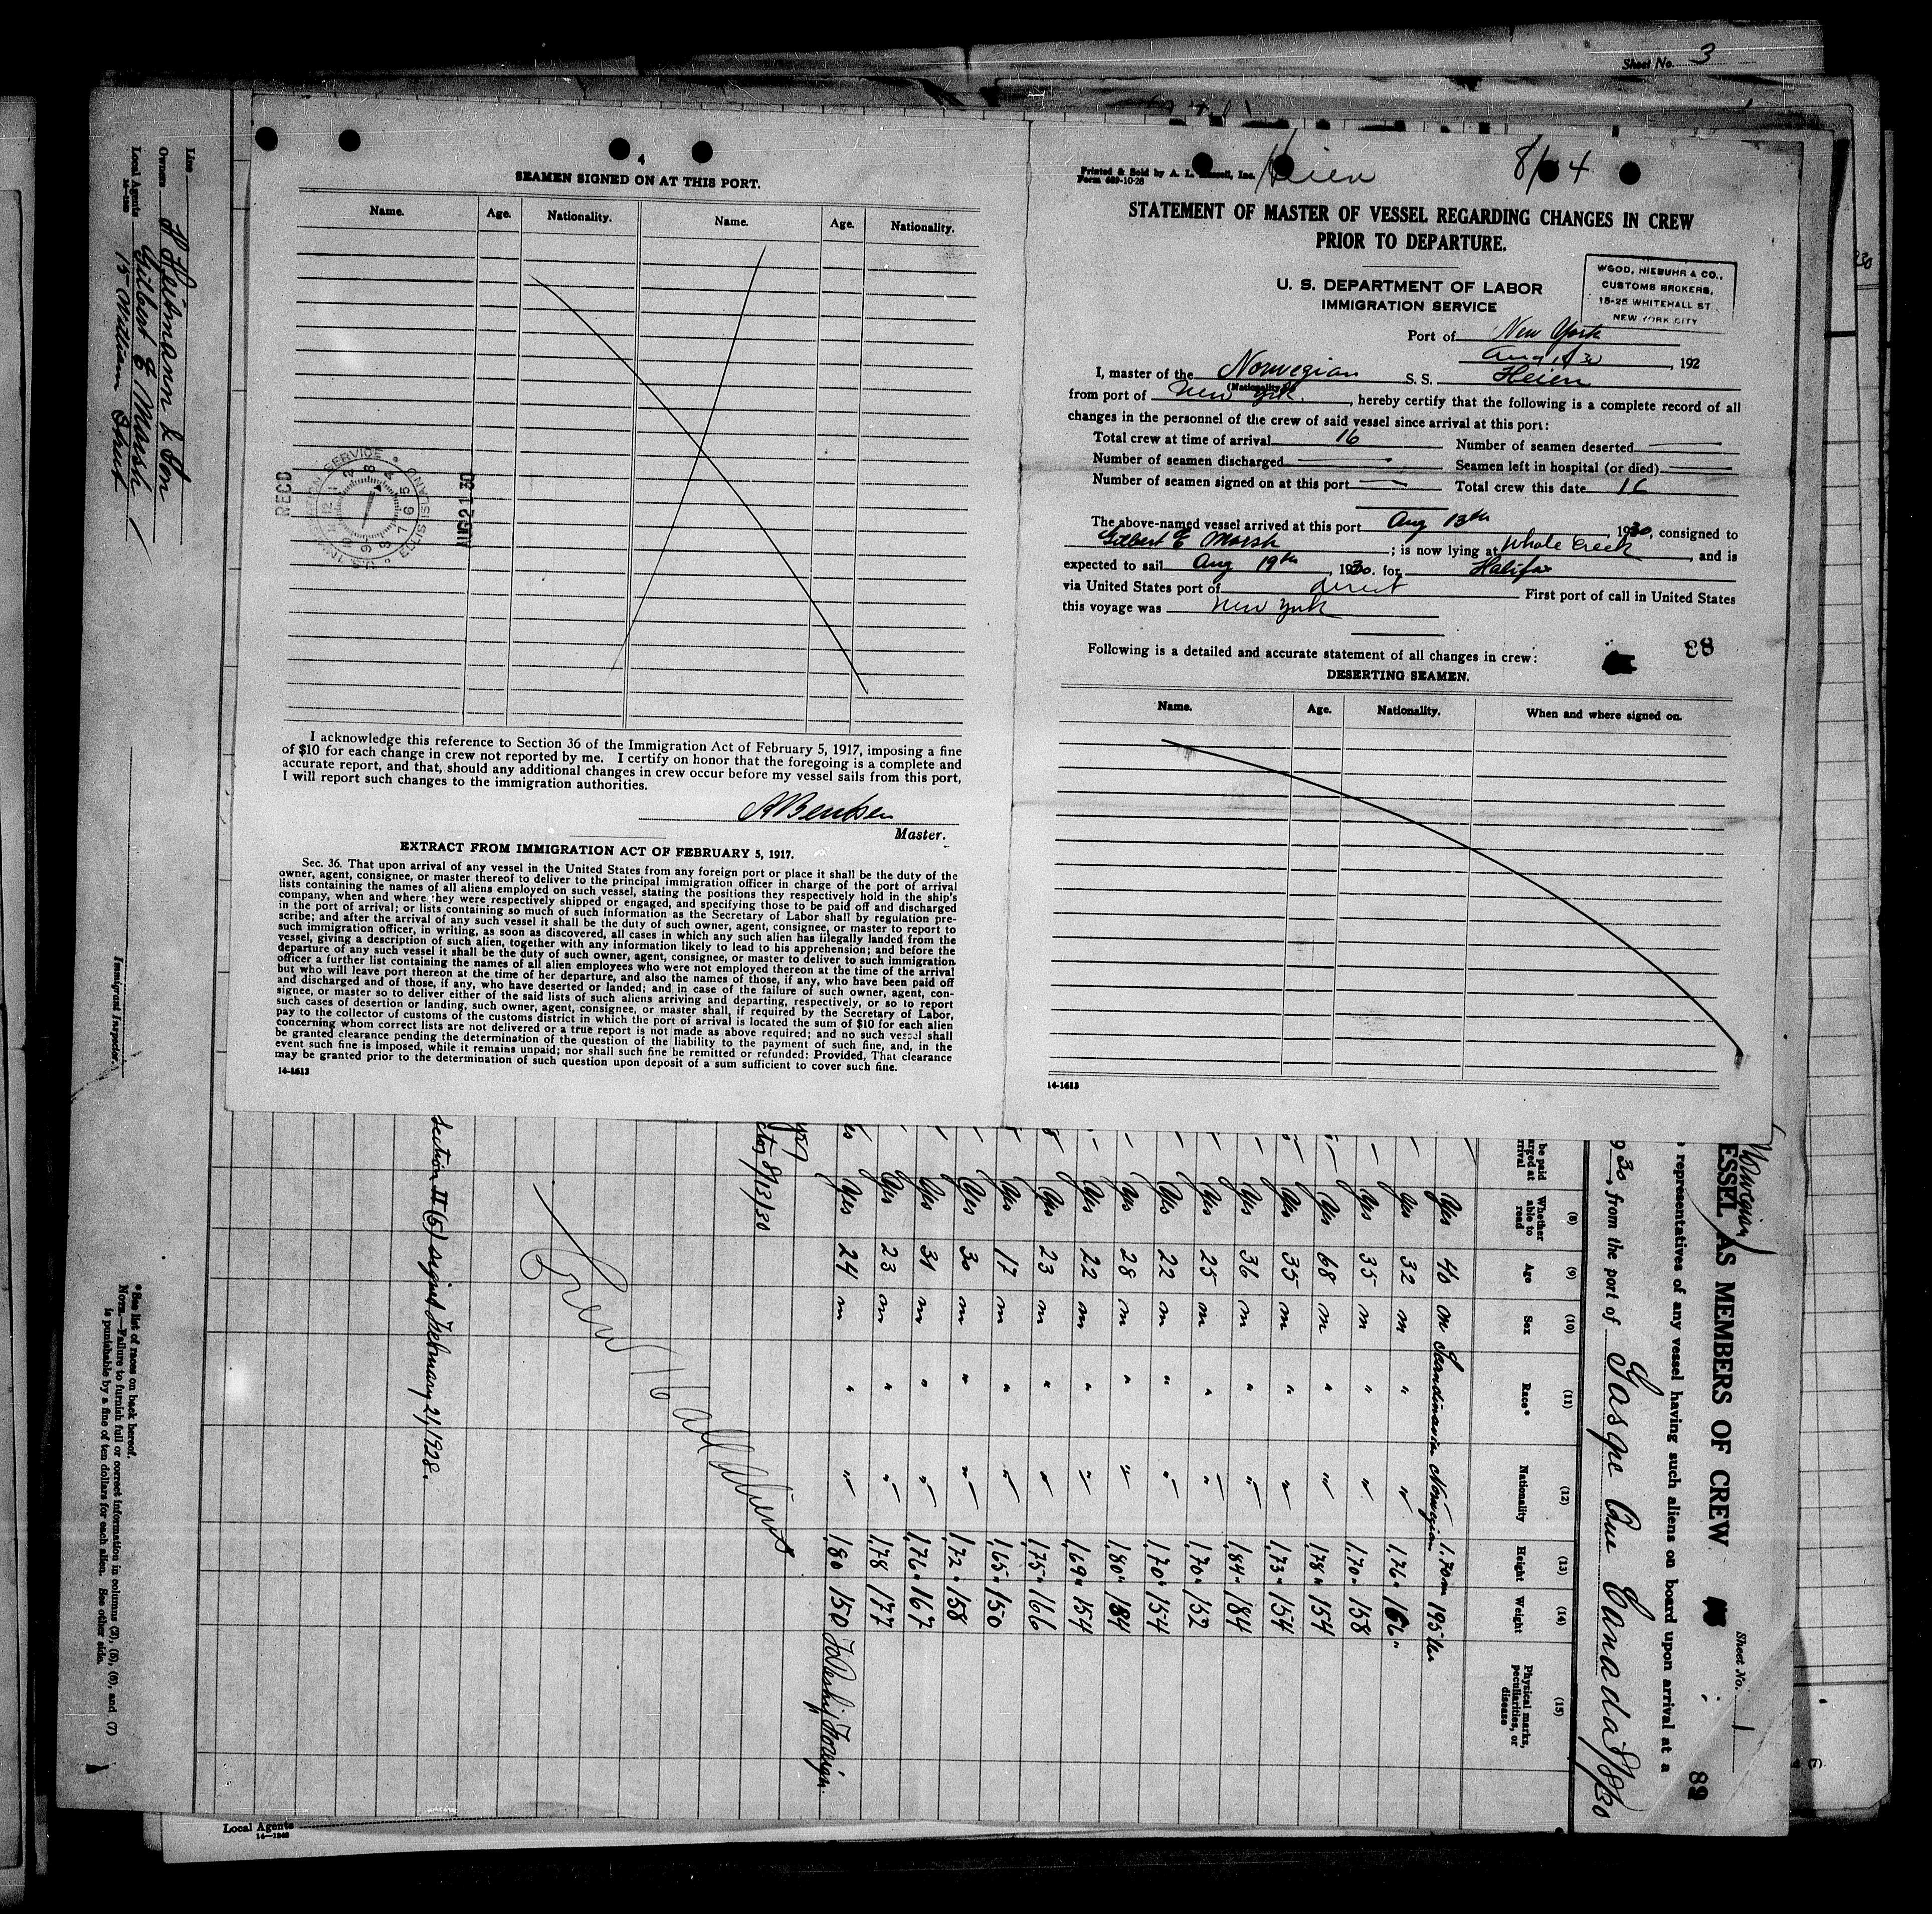 Sheet No. 3
4
SEAMEN SIGNED ON AT THIS PORT.
Name. Age. Nationality. Name. Age. Nationality.
RECD
U.S. IMMIGRATION SERVICE * ELLIS ISLAND
AUG 21 30
I acknowledge this reference to Section 36 of the Immigration Act of February 5, 1917, imposing a fine
of $10 for each change in crew not reported by me. I certify on honor that the foregoing is a complete and
accurate report, and that, should any additional changes in crew occur before my vessel sails from this port,
I will report such changes to the immigration authorities.
Master.
EXTRACT FROM IMMIGRATION ACT OF FEBRUARY 5, 1917.
Sec. 36. That upon arrival of any vessel in the United States from any foreign port or place it shall be the duty of the
owner, agent, consignee, or master thereof to deliver to the principal immigration officer in charge of the port of arrival
lists containing the names of all aliens employed on such vessel, stating the positions they respectively hold in the ship's
company, when and where they were respectively shipped or engaged, and specifying those to be paid off and discharged
in the port of arrival; or lists containing so much of such information as the Secretary of Labor shall by regulation pre-
scribe; and after the arrival of any such vessel it shall be the duty of such owner, agent, consignee, or master to report to
such immigration officer, in writing, as soon as discovered, all cases in which any such alien has illegally landed from the
vessel, giving a description of such alien, together with any information likely to lead to his apprehension; and before the
departure of any such vessel it shall be the duty of such owner, agent, consignee, or master to deliver to such immigration
officer a further list containing the names of all alien employees who were not employed thereon at the time of the arrival
but who will leave port thereon at the time of her departure, and also the names of those, if any, who have been paid off
and discharged and of those, if any, who have deserted or landed; and in case of the failure of such owner, agent, con-
signee, or master so to deliver either of the said lists of such aliens arriving and departing, respectively, or so to report
such cases of desertion or landing, such owner, agent, consignee, or master shall, if required by the Secretary of Labor,
pay to the collector of customs of the customs district in which the port of arrival is located the sum of $10 for each alien
concerning whom correct lists are not delivered or a true report is not made as above required; and no such vessel shall
be granted clearance pending the determination of the question of the liability to the payment of such fine, and, in the
event such fine is imposed, while it remains unpaid; nor shall such fine be remitted or refunded: Provided, That clearance
may be granted prior to the determination of such question upon deposit of a sum sufficient to cover such fine.
14-1613
Printed & Sold by A. L. Inc. Heien 8/14
Form 689-10-28
STATEMENT OF MASTER OF VESSEL REGARDING CHANGES IN CREW
PRIOR TO DEPARTURE.
U. S. DEPARTMENT OF LABOR
IMMIGRATION SERVICE
WOOD, NIEBUHR & CO.,
CUSTOMS BROKERS,
15-25 WHITEHALL ST.,
NEW YORK CITY
Port of New York
Aug , 192
I, master of the Norwegian S. S. Heien
(Nationality)
from port of New York, hereby certify that the following is a complete record of all
changes in the personnel of the crew of said vessel since arrival at this port:
Total crew at time of arrival 16 Number of seamen deserted
Number of seamen discharged Seamen left in hospital (or died)
Number of seamen signed on at this port Total crew this date 16
The above-named vessel arrived at this port Aug 13th, 1930, consigned to
Gilbert E Marsh; is now lying at Whale Creek, and is
expected to sail Aug 19th, 1930. for Halifax
via United States port of direct First port of call in United States
this voyage was New York
88
Following is a detailed and accurate statement of all changes in crew:
DESERTING SEAMEN.
Name. Age. Nationality. When and where signed on.
14-1613
Line
Owners Heitmann & Son
Local Agents Gilbert E Marsh
14-1240
15 William Street
Immigrant Inspector.
*See list of races on back hereof.
NOTE.—Failure to furnish full or correct information in columns (2), (5), (6), and (7)
is punishable by a fine of ten dollars for each alien. See other side.
Local Agents
14-1240
Norwegian
VESSEL AS MEMBERS OF CREW
Sheet No. 1
89
representatives of any vessel having such aliens on board upon arrival at a
30, from the port of Gaspe Que Canada 8/8/30
(8) (9) (10) (11) (12) (13) (14) (15)
Whether able to read Age Sex Race* Nationality Height Weight Physical marks, peculiarities, or disease
Yes 40 m Scandinavia Norwegian 1.70m 195 lbs
Yes 32 m " " 1,76 " 166 "
Yes 35 m " " 1,70 " 158
Yes 68 m " " 1,78 " 154
Yes 35 m " " 1,73 " 154
Yes 36 m " " 1,84 " 184
Yes 25 m " " 1,70 " 152
Yes 22 m " " 1,70 " 154
Yes 28 m " " 1,80 " 184
Yes 22 m " " 1,69 " 154
Yes 23 m " " 1,75 " 166
Yes 17 m " " 1,65 " 150
Yes 30 m " " 1,72 " 158
Yes 31 m " " 1,76 " 167
Yes 23 m " " 1,78 177
Yes 24 m " " 1,80 150 Foreign
8/13/30
Crew 16 all
Section II (5) signed February 21, 1928.